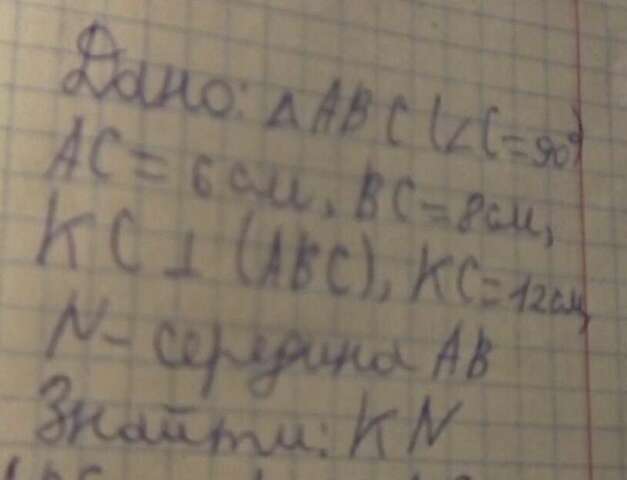 Дано: ΔABC (∠C=90°)
AC = 6 см, BC = 8 см,
KC ⊥ (ABC), KC = 12 см,
N - середина AB
Знайти: KN